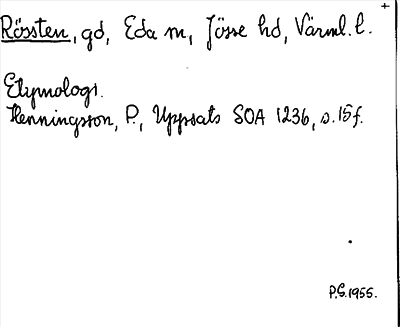 +
Rössten, gd, Eda sn, Jösse hd, Värml. l.
Etymologi.
Henningsson, P., Uppsats SOA 1236, s. 15 f.
P.G. 1955.